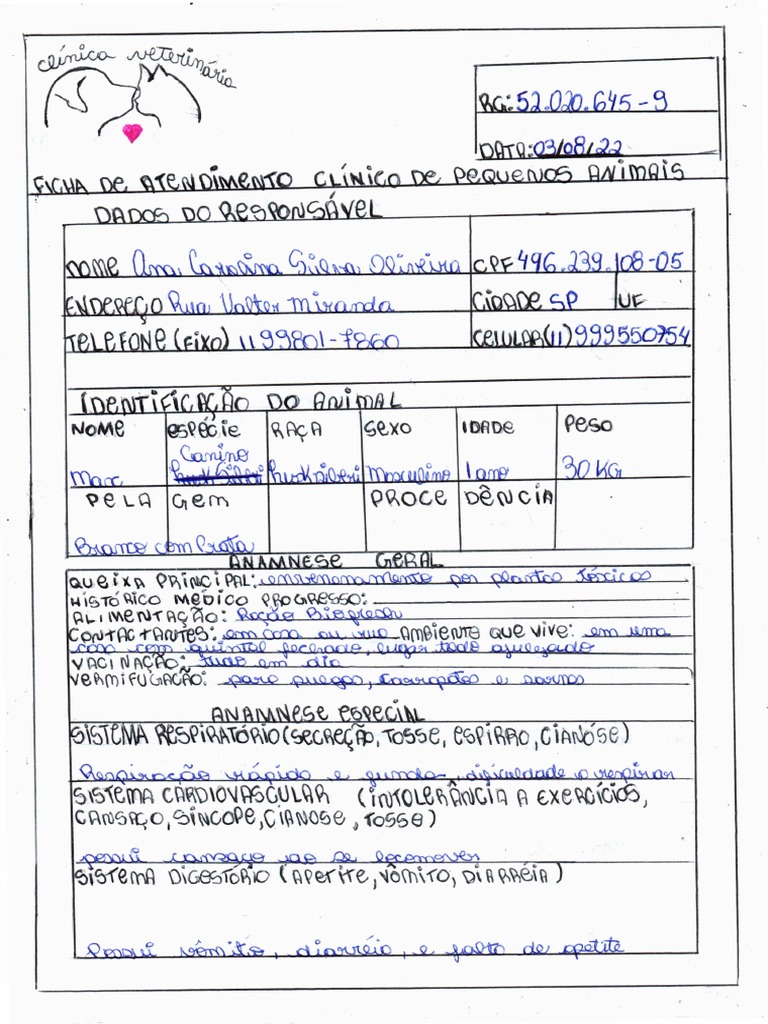 clínica veterinária
RG: 52.020.645-9
DATA: 03/08/22
FICHA DE ATENDIMENTO CLÍNICO DE PEQUENOS ANIMAIS
DADOS DO RESPONSÁVEL
NOME Ana Carolina Silva Oliveira CPF 496.239.108-05
ENDEREÇO Rua Valter Miranda CIDADE SP UF
TELEFONE (FIXO) 11 99801-7860 CELULAR (11) 999550754
IDENTIFICAÇÃO DO ANIMAL
NOME ESPÉCIE RAÇA SEXO IDADE PESO
Canino
Max huskSiberi Masculino 1 ano 30 KG
PELA GEM PROCE DÊNCIA
Branco com Prata
ANAMNESE GERAL
QUEIXA PRINCIPAL: envenenamento por plantas tóxicas
HISTÓRICO MÉDICO PROGRESSO:
ALIMENTAÇÃO: Ração Biofresh
CONTACTANTES: em casa ou rua AMBIENTE QUE VIVE: em uma
casa com quintal fechado, lugar todo azulejado
VACINAÇÃO: tudo em dia
VERMIFUGAÇÃO: para pulgas, carrapatos e sarnas
ANAMNESE ESPECIAL
SISTEMA RESPIRATÓRIO (SECREÇÃO, TOSSE, ESPIRRO, CIANÓSE)
Respiração rápida e funda, dificuldade a respirar
SISTEMA CARDIOVASCULAR (INTOLERÂNCIA A EXERCÍCIOS,
CANSAÇO, SINCOPE, CIANOSE, TOSSE)
possui cansaço ao se locomover
SISTEMA DIGESTÓRIO (APETITE, VÔMITO, DIARRÉIA)
Possui vômito, diarréia, e falta de apetite